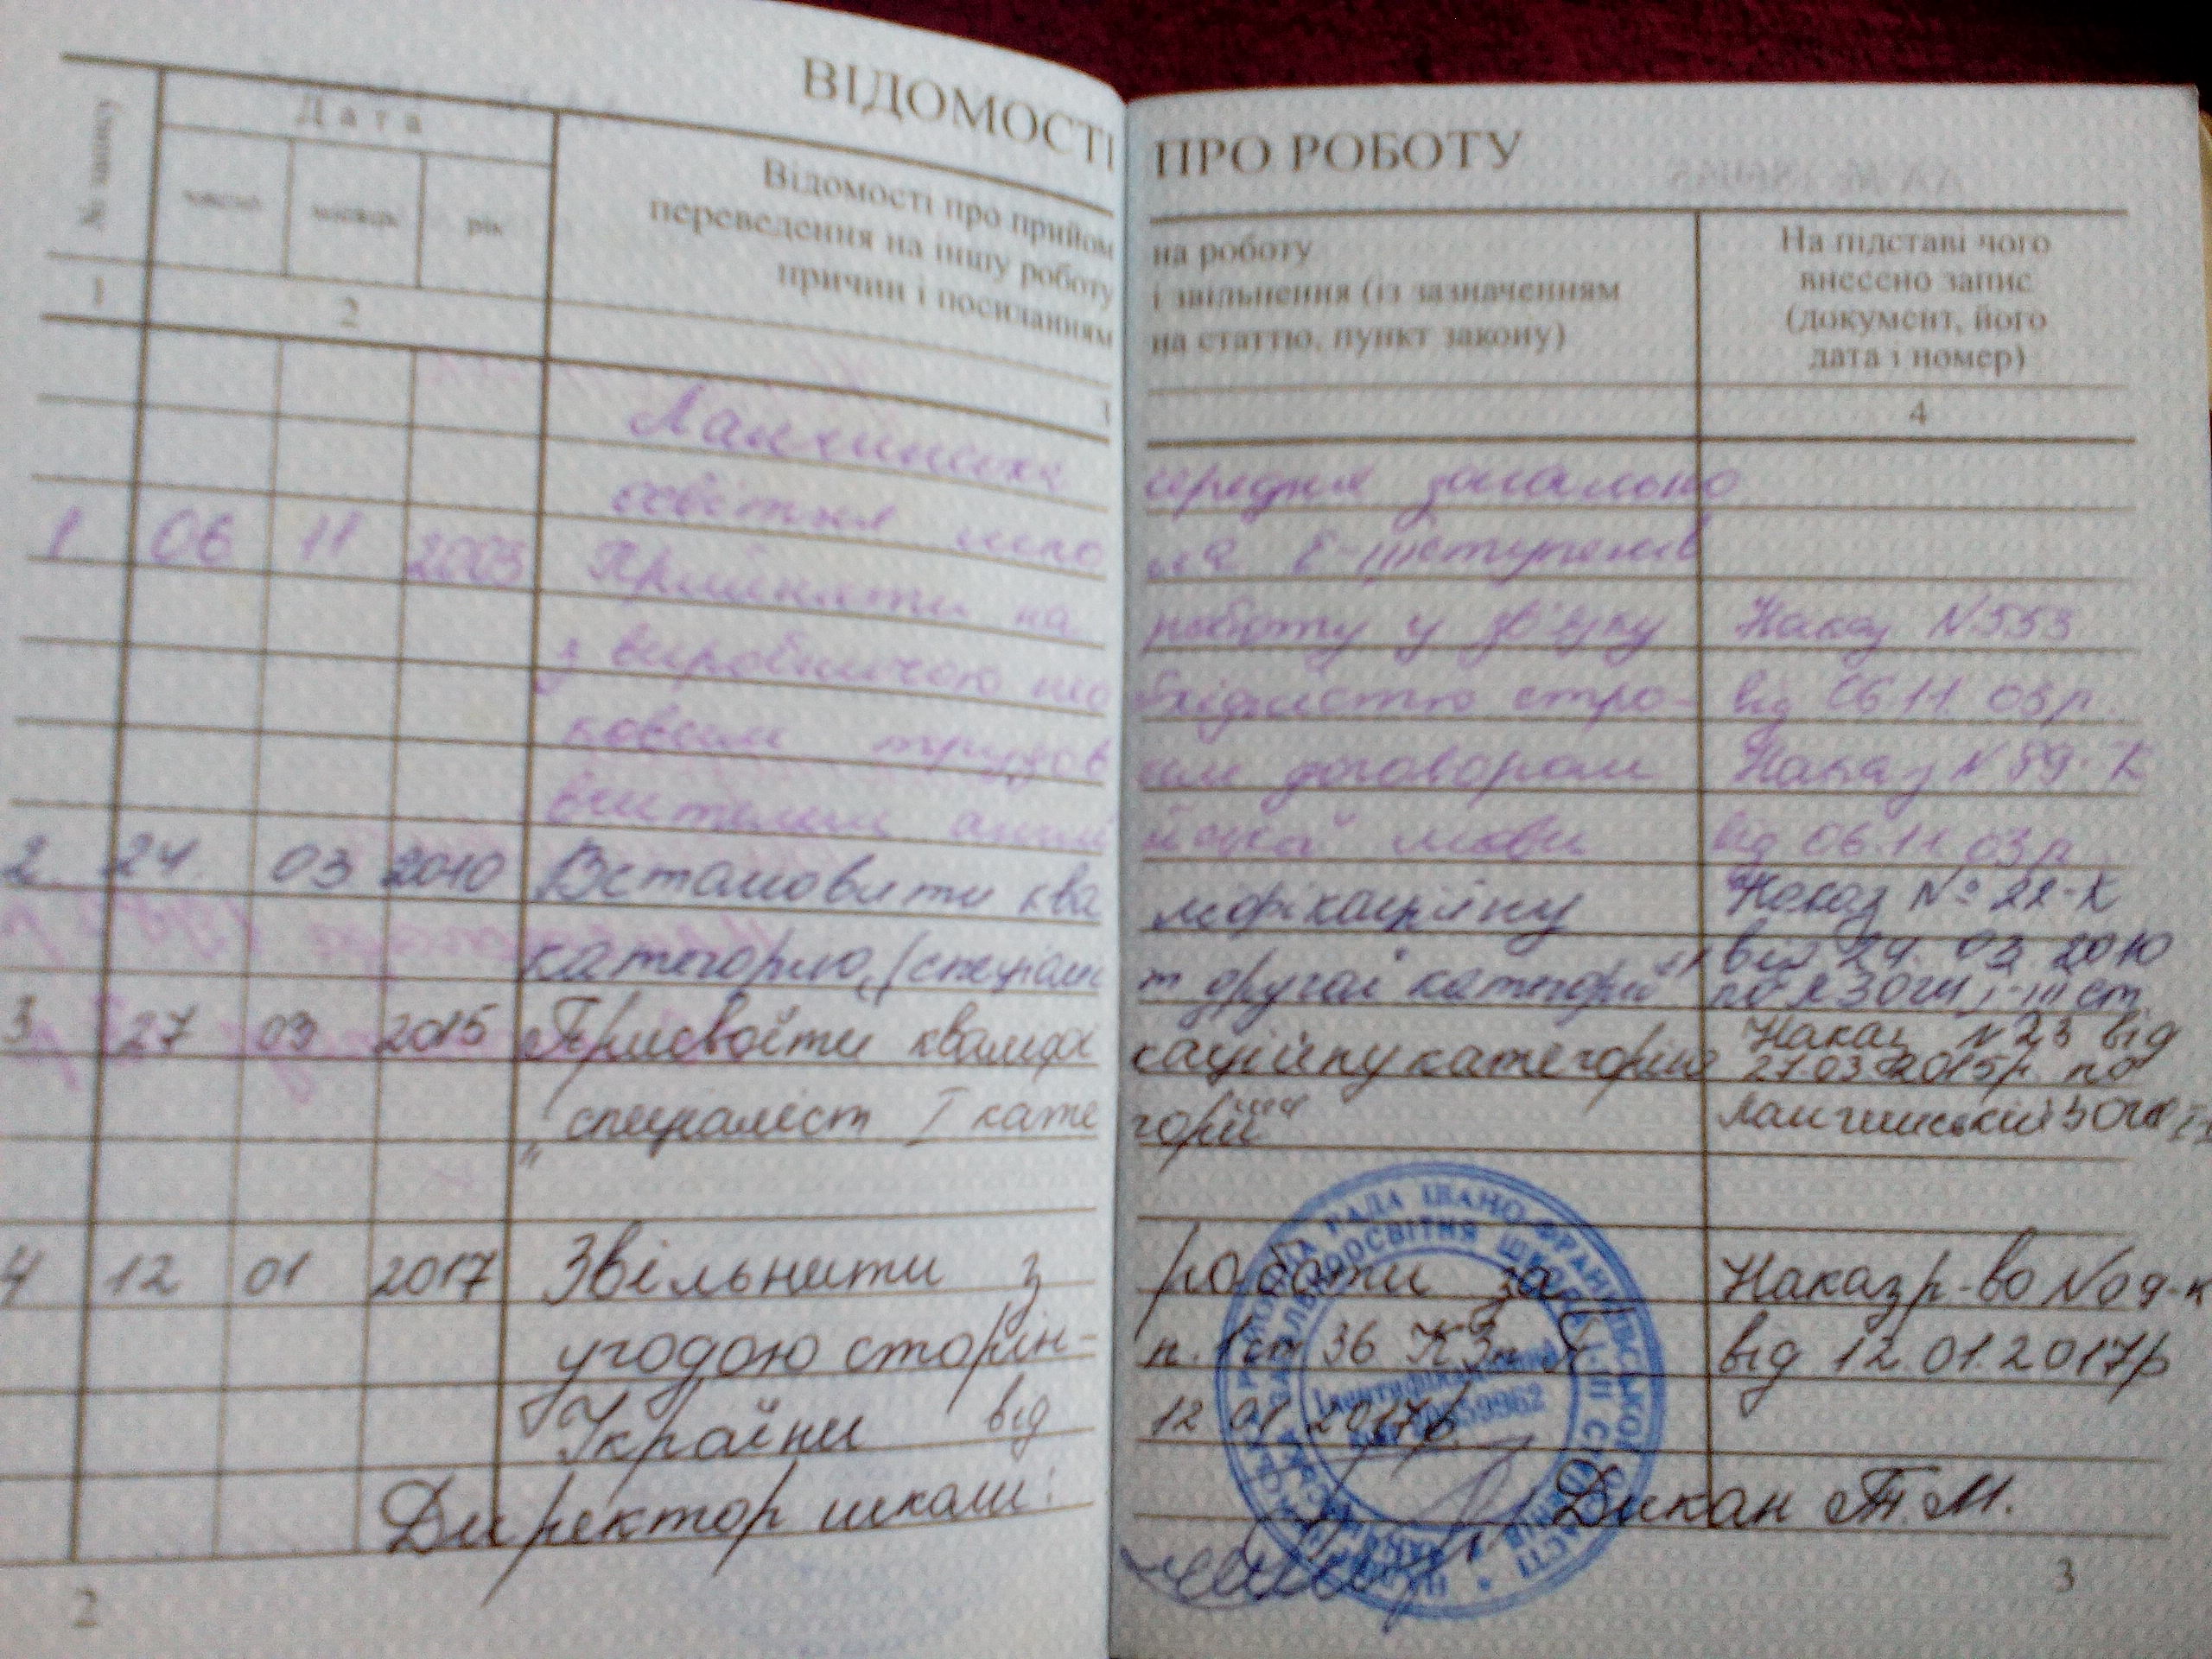 ВІДОМОСТІ ПРО РОБОТУ
№ запису
Дата
число місяць рік
Відомості про прийом на роботу
переведення на іншу роботу і звільнення (із зазначенням
причин і посиланням на статтю, пункт закону)
На підставі чого
внесено запис
(документ, його
дата і номер)
1 2 3 4
Ланчинська середня загально
освітня шко ла І-ІІІступенів
1 06 11 2003 Прийняти на роботу у зв'язку Наказ N 553
з виробничою нео бхідністю стро- від 06.11.03р.
ковим трудов им договором Наказ N 89-К
вчителем англ ійської мови від 06.11.03р.
2 24. 03 2010 Встановити ква ліфікаційну Наказ № 22-К
категорію „(спеціаліс т другої категорії" від 24.03.2010
по ЛЗОШ І-ІІІ ст
3 27 03 2015 Присвоїти кваліфі каційну категорію Наказ N23 від
27.03.2015р. по
„спеціаліст І кате горії" Ланчинській ЗОШ
4 12 01 2017 Звільнити з роботи за Наказ р-во №09-к
угодою сторін- п.1 ст 36 КЗпП від 12.01.2017р
України від 12 01 2017р.
Директор школи: Дикан Т.М.
РАДА ІВАНО-ФРАНКІВСЬКОЇ ОБЛАСТІ
ЗАГАЛЬНООСВІТНЯ ШКОЛА І-ІІІ СТУПЕНІВ
Ідентифікаційний
2 3